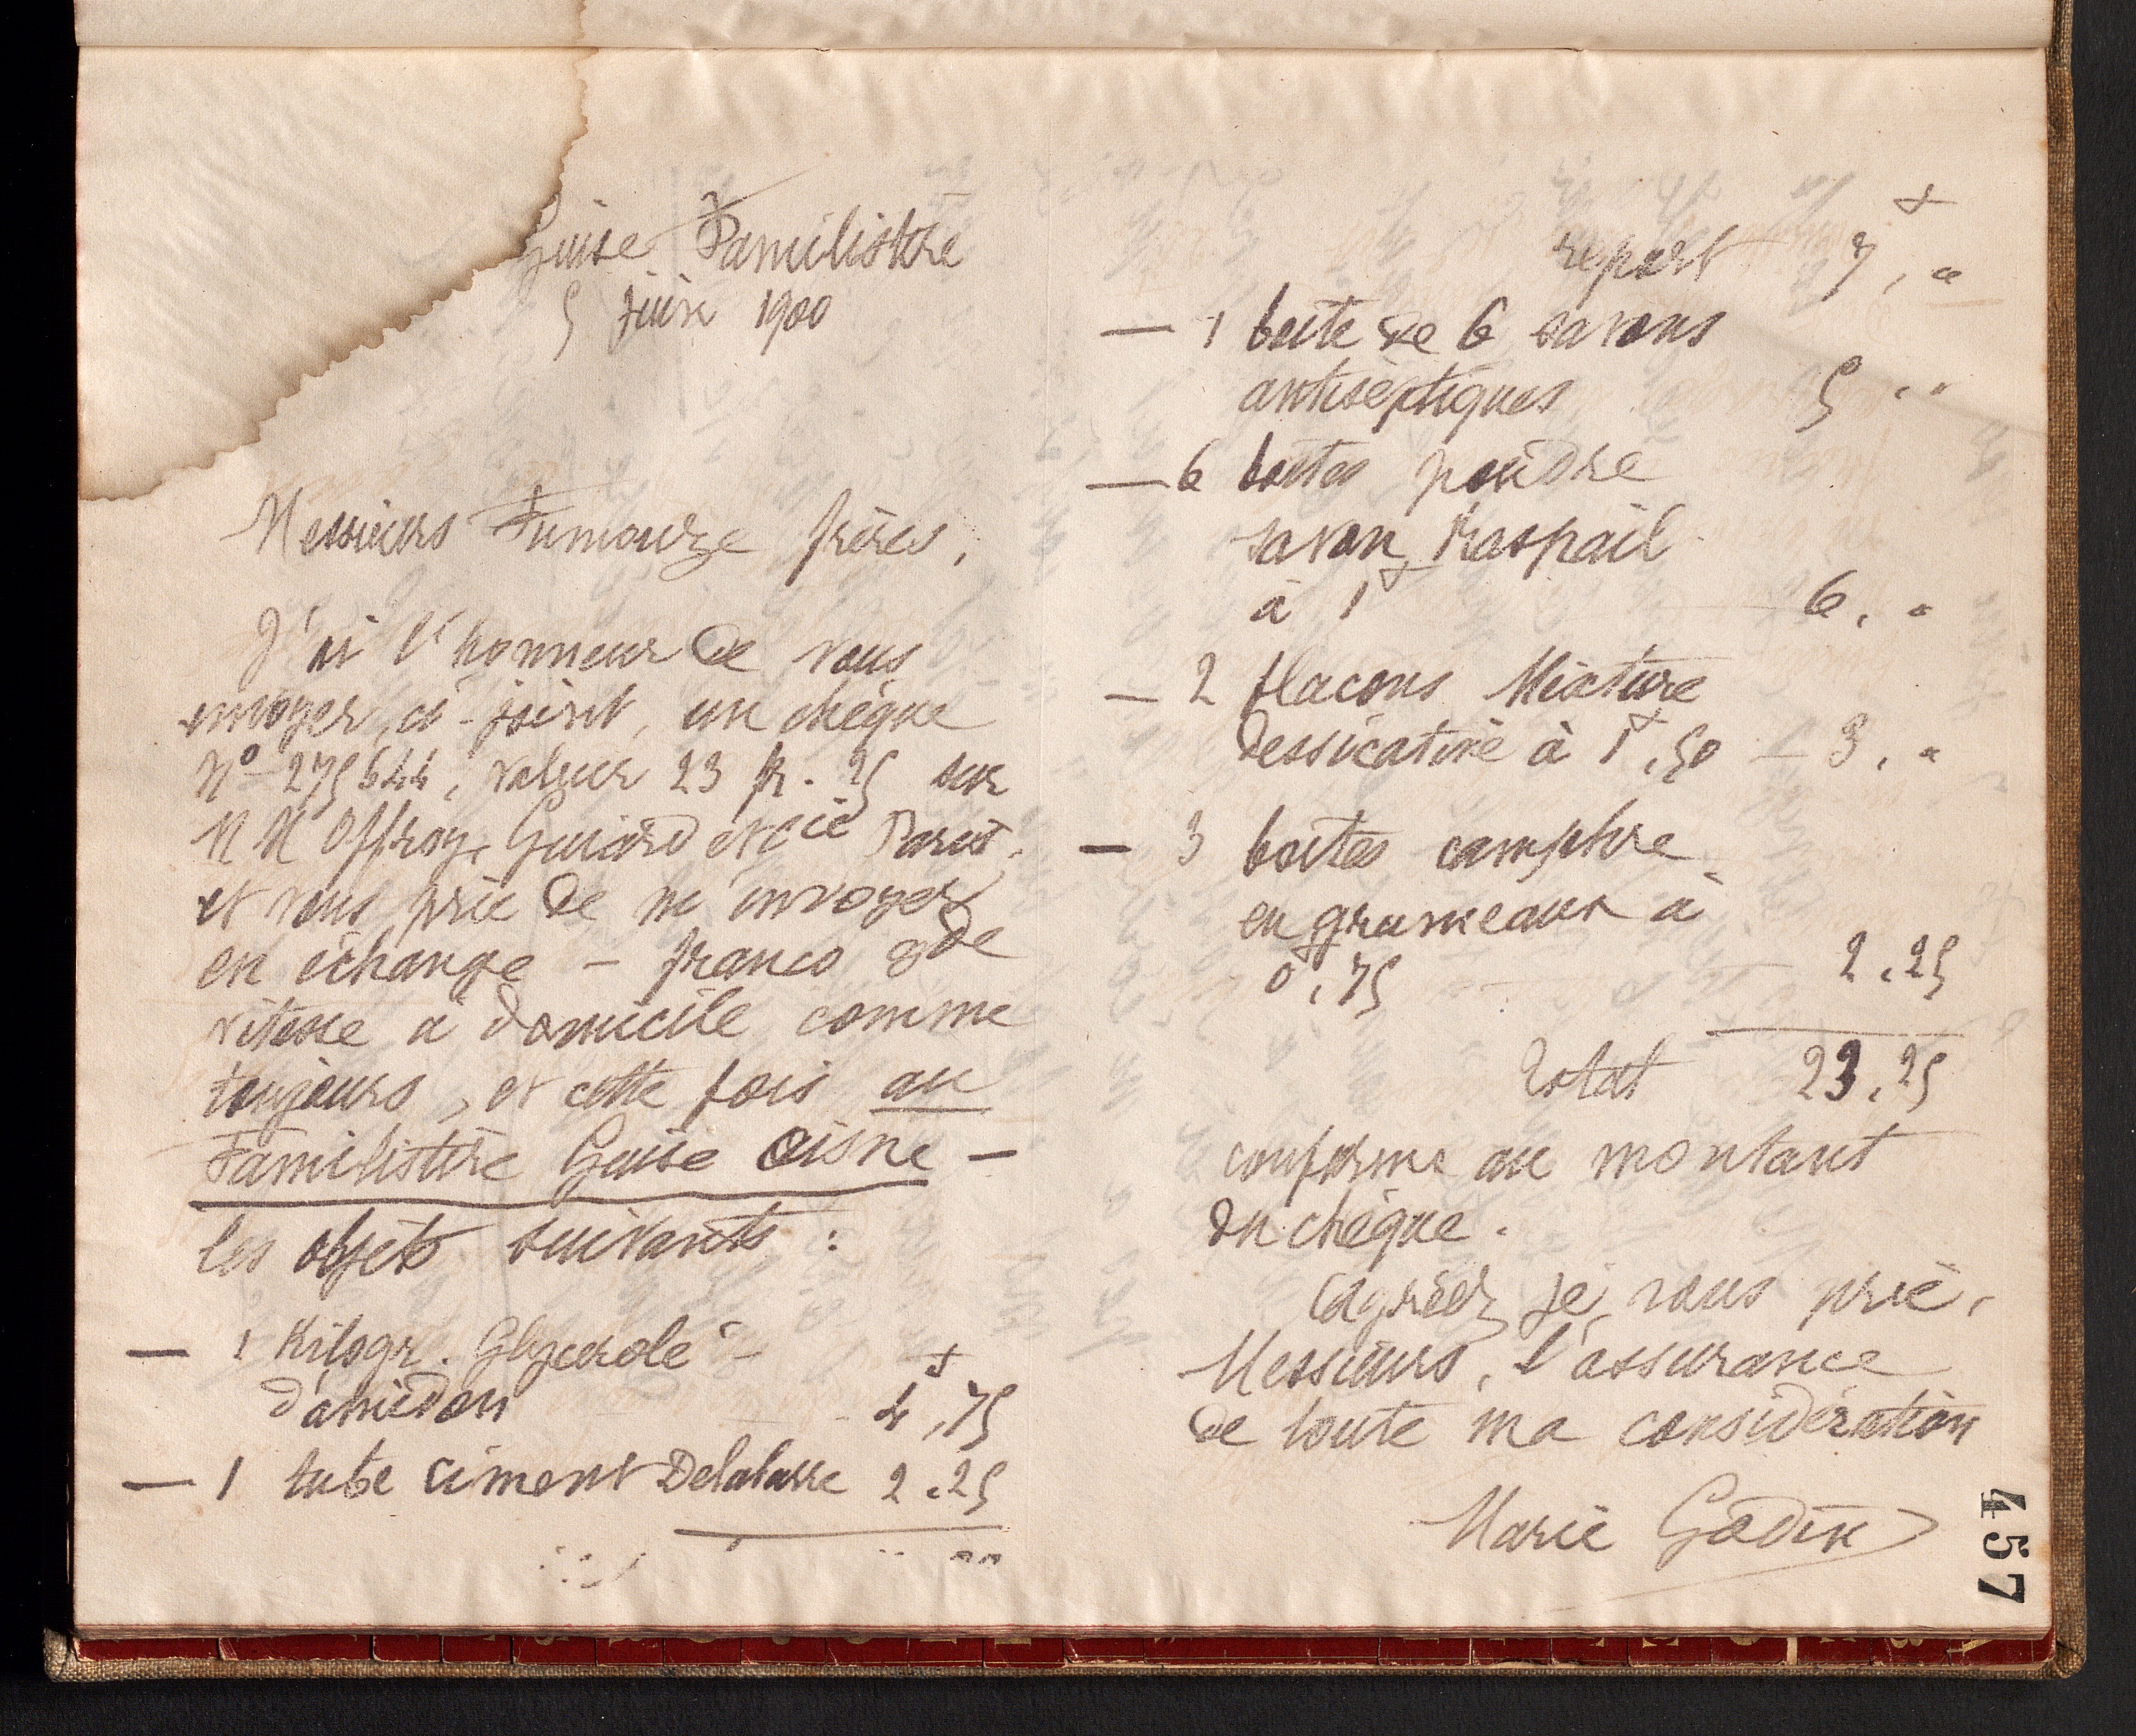 Guise Familistère
5 juin 1900
Messieurs Fumouze frères,
J'ai l'honneur de vous
envoyer, ci-joint, un chèque
N° 275644, valeur 23 fr. 25 sur
MM Offroy, Guiard et Cie Paris,
et vous prie de m'envoyer
en échange – franco gde
vitesse à domicile comme
toujours, et cette fois au
Familistère Guise Aisne –
les objets suivants :
— 1 Kilogr. Glycérolé –
d'amidon 4f,75
— 1 tube ciment Delabarre 2.25
report 7f, "
— 1 boîte de 6 savons
antiseptiques 5 , "
— 6 boîtes poudre
savon Raspail
à 1f 6, "
— 2 flacons Mixture
dessicative à 1f,50 – 3, "
— 3 boîtes camphre
en grumeaux à
0f,75 2,25
Total 23,25
conforme au montant
du chèque.
Agréez, je vous prie,
Messieurs, l'assurance
de toute ma considération
Marie Godin
457